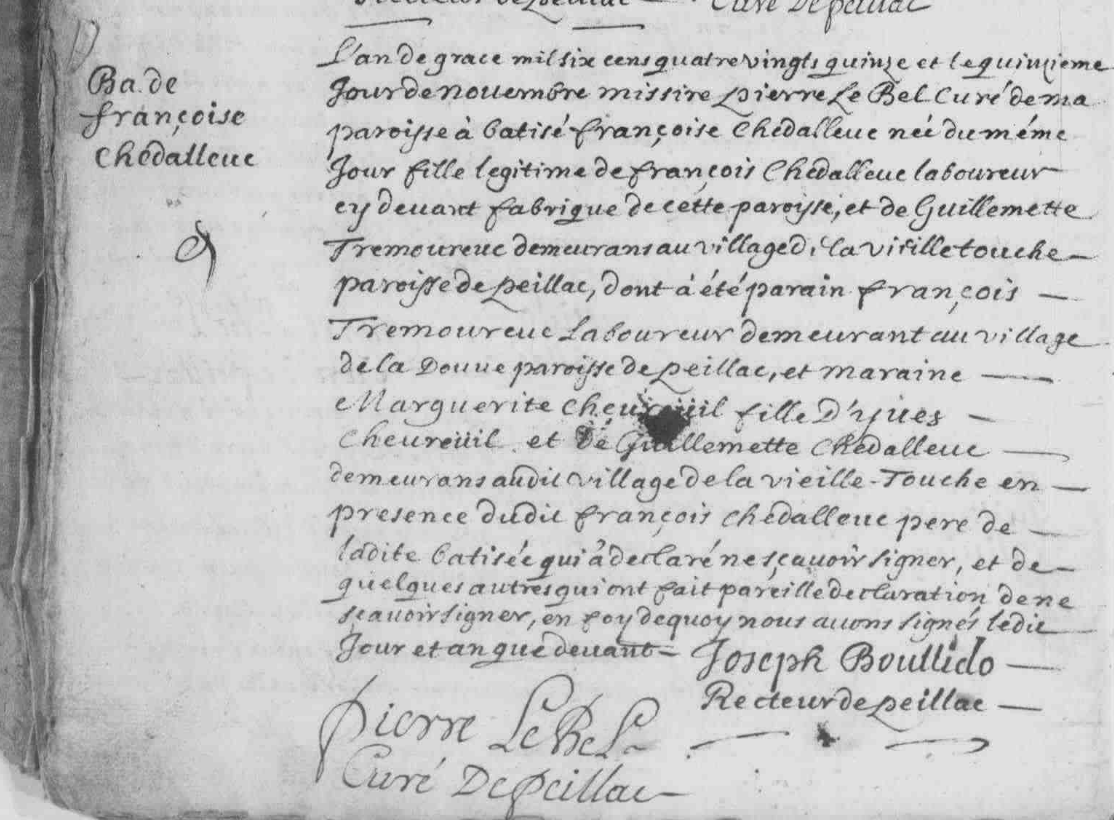 Curé De peillac
L'an de grace mil six cens quatre vingts quinze et le quinzieme
Jour de nouembre missire pierre Le Bel Curé de ma
Ba. de
françoise
Chedalleuc
paroisse à batisé françoise Chedalleuc neé du méme
Jour fille legitime de françois Chedalleuc laboureur
cy deuant fabrique de cétte paroisse, et de Guillemette
Tremoureuc demeurans au village de la vieille touche
paroisse de peillac, dont à été parain françois
Tremoureuc Laboureur demeurant au village
de la Douue paroisse de peillac, et maraine
Marguerite Cheureüil fille D'yues
Cheureüil et de Guillemette Chedalleuc
demeurans audit village de la vieille-Touche en
presence dudit françois Chedalleuc pere de
ladite batisée qui à declaré ne sçauoir signer, et de
quelques autres qui ont fait pareille declaration de ne
sçauoir signer, en foy de quoy nous auons signés ledit
Jour et an que deuant Joseph Boullido
Recteur de peillac
pierre Le Bel
Curé De peillac